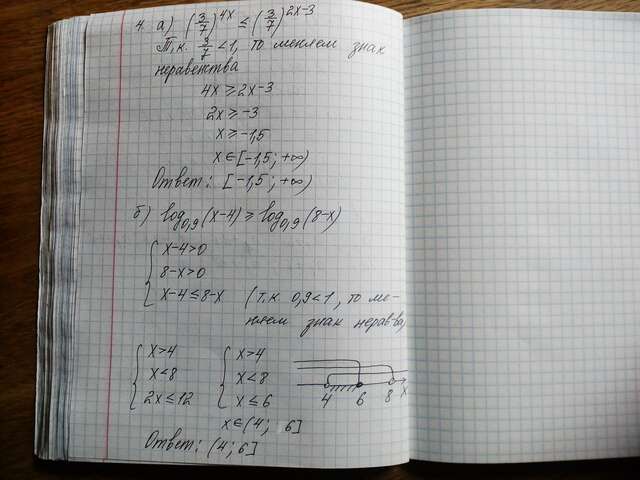 4. а) (3/7)^4x ≤ (3/7)^2x-3
Т.к. 3/7 < 1, то меняем знак
неравенства
4x ≥ 2x-3
2x ≥ -3
x ≥ -1,5
x ∈ [-1,5; +∞)
Ответ: [-1,5; +∞)
б) log0,9 (x-4) ≥ log0,9 (8-x)
{ x-4>0
8-x>0
x-4 ≤ 8-x (т.к. 0,9<1, то ме-
няем знак нерав-ва)
{ x>4 { x>4
x<8 x<8
2x ≤ 12 x ≤ 6
4 6 8 x
x ∈ (4; 6]
Ответ: (4; 6]